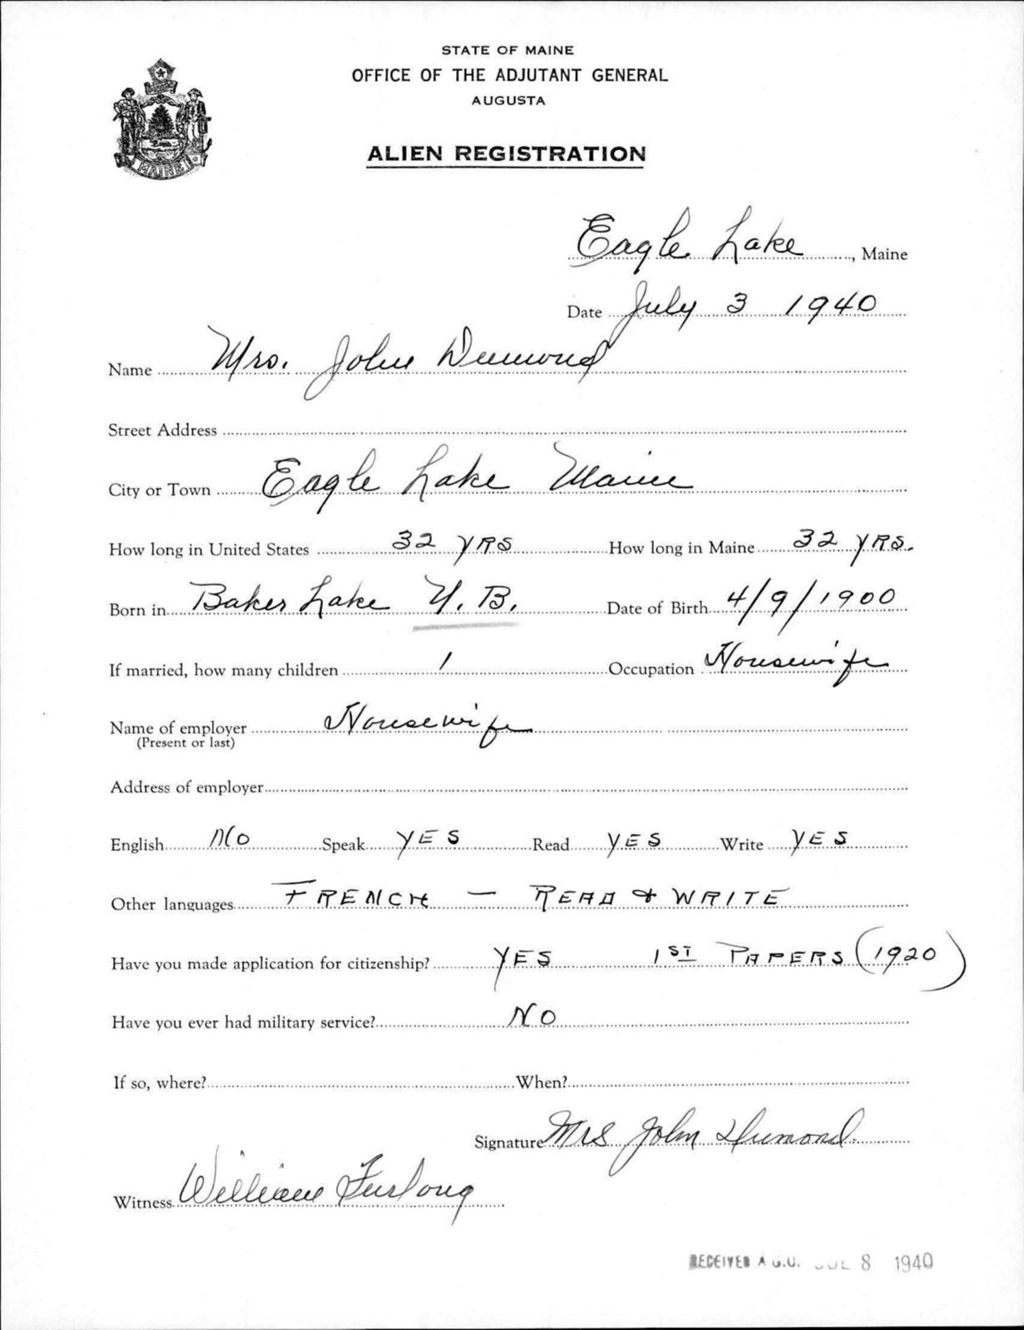 STATE OF MAINE
OFFICE OF THE ADJUTANT GENERAL
AUGUSTA
ALIEN REGISTRATION
MAINE
Eagle Lake, Maine
Date July 3 1940
Name Mrs. John Dumond
Street Address
City or Town Eagle Lake Maine
How long in United States 32 YRS How long in Maine 32 YRS.
Born in Baker Lake N. B. Date of Birth 4/9/1900
If married, how many children 1 Occupation Housewife
Name of employer Housewife
(Present or last)
Address of employer
English No Speak YES Read YES Write YES
Other languages FRENCH — READ & WRITE
Have you made application for citizenship? YES 1ST PAPERS (1920)
Have you ever had military service? NO
If so, where? When?
Signature Mrs John Dumond
Witness William Furlong
RECEIVED A.G.O. JUL 8 1940